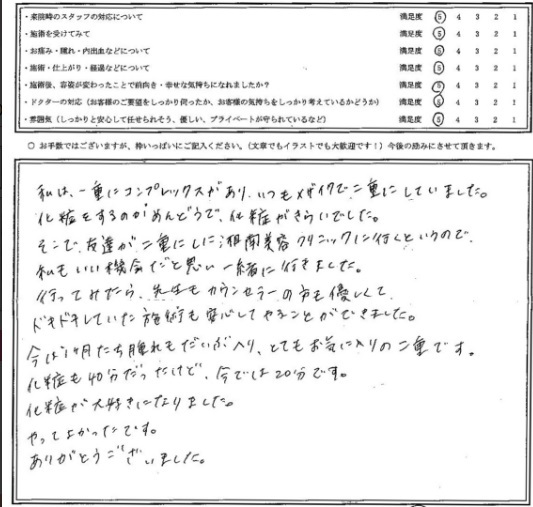 ・来院時のスタッフの対応について 満足度 5 4 3 2 1
・施術を受けてみて 満足度 5 4 3 2 1
・お痛み・腫れ・内出血などについて 満足度 5 4 3 2 1
・施術・仕上がり・経過などについて 満足度 5 4 3 2 1
・施術後、容姿が変わったことで前向き・幸せな気持ちになれましたか? 満足度 5 4 3 2 1
・ドクターの対応(お客様のご要望をしっかり伺ったか、お客様の気持ちをしっかり考えているかどうか) 満足度 5 4 3 2 1
・雰囲気(しっかりと安心して任せられそう、優しい、プライベートが守られているなど) 満足度 5 4 3 2 1
○ お手数ではございますが、枠いっぱいにご記入ください。(文章でもイラストでも大歓迎です!)今後の励みにさせて頂きます。
私は、一重にコンプレックスがあり、いつもメザイクで二重にしていました。
化粧をするのがめんどうで、化粧がきらいでした。
そこで、友達が二重にしに湘南美容クリニックに行くというので、
私もいい機会だと思い一緒に行きました。
行ってみたら、先生もカウンセラーの方も優しくて
ドキドキしていた施術も安心してやることができました。
今は1ヶ月たち腫れもだいぶ入り、とてもお気に入りの二重です。
化粧も40分だったけど、今では20分です。
化粧が大好きになりました。
やってよかったです。
ありがとうございました。